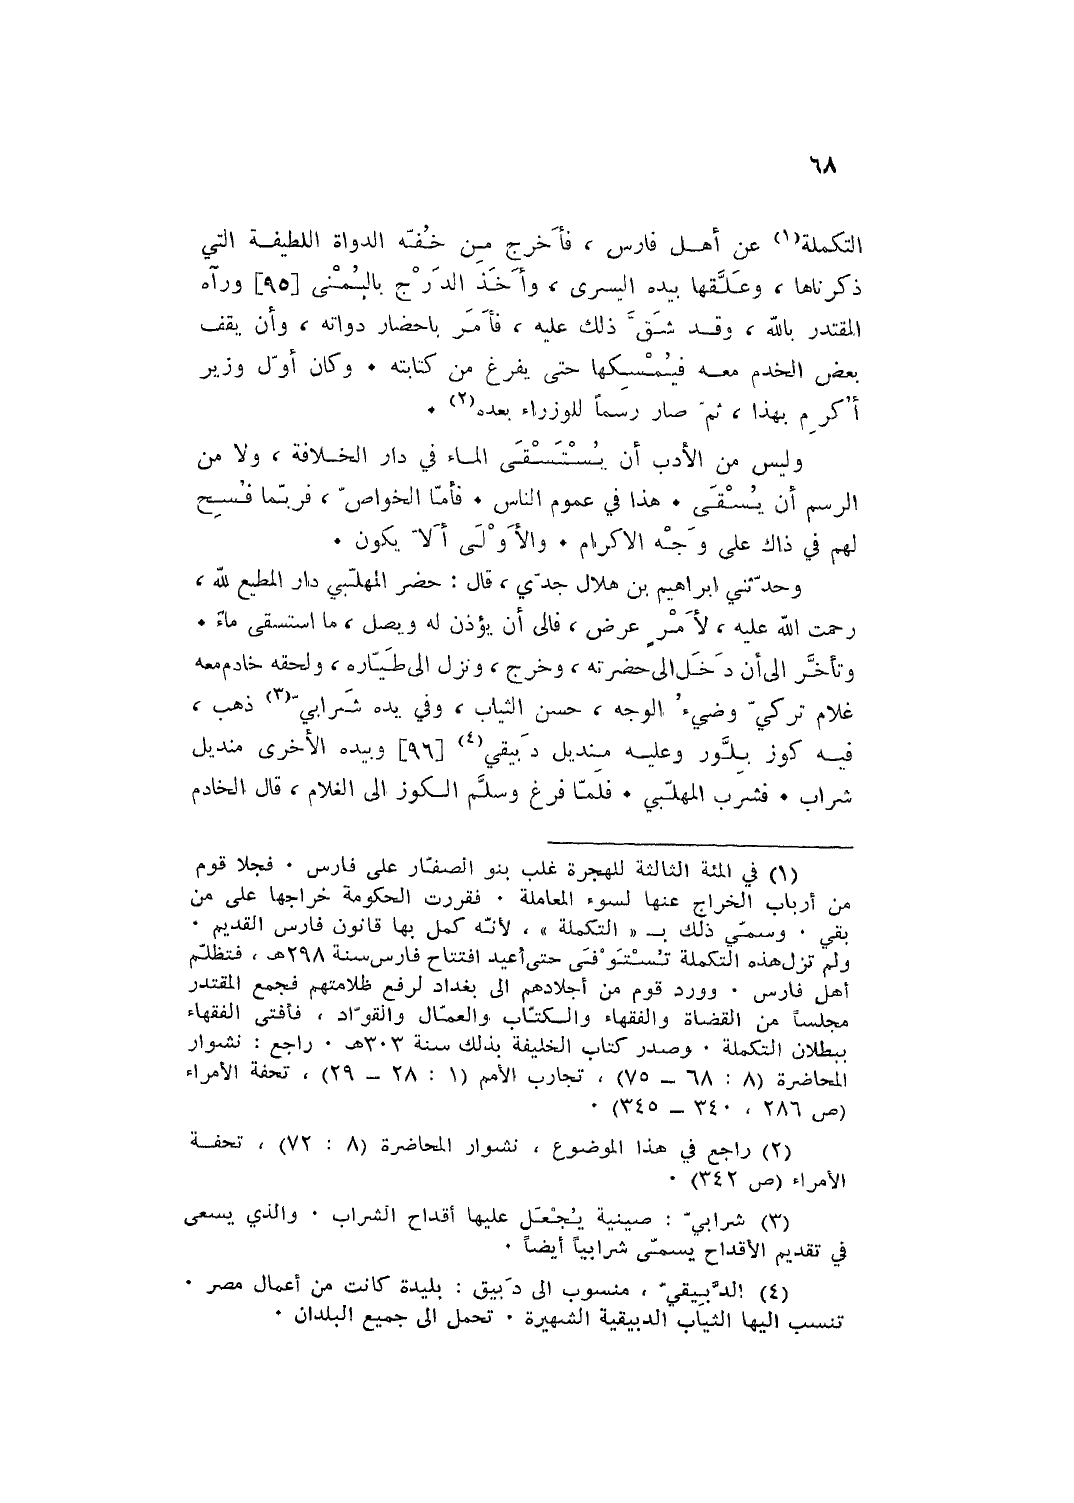 ٦٨
التكملة(١) عن أهــل فارس ، فأَخرج مـن خُفّه الدواة اللطيفـة التي
ذكرناها ، وعَلَّقها بيده اليسرى ، وأَخَذَ الدَرْج باليُمْنى [٩٥] ورآه
المقتدر بالله ، وقـد شَقَّ ذلك عليه ، فأَمَر باحضار دواته ، وأن يقف
بعض الخدم معـه فيُمْسِكها حتى يفرغ من كتابته . وكان أوّل وزير
أُكرِم بهذا ، ثمّ صار رسماً للوزراء بعده(٢) .
وليس من الأدب أن يُسْتَسْقَى الماء في دار الخـلافة ، ولا من
الرسم أن يُسْقَى . هذا في عموم الناس . فأمّا الخواصّ ، فربّما فُسِح
لهم في ذاك على وَجْه الاكرام . والأَوْلَى أَلاّ يكون .
وحدّثني ابراهيم بن هلال جدّي ، قال : حضر المهلّبي دار المطيع لله ،
رحمت الله عليه ، لأَمْرٍ عرض ، فالى أن يؤذن له ويصل ، ما استسقى ماءً .
وتأخَّر الى أن دَخَل الى حضرته ، وخرج ، ونزل الى طَيّاره ، ولحقه خادم معه
غلام تركيّ وضيءُ الوجه ، حسن الثياب ، وفي يده شَرابيّ(٣) ذهب ،
فيـه كوز بِلَّور وعليـه مِنديل دَبيقي(٤) [٩٦] وبيده الأخرى منديل
شراب . فشرب المهلّبي . فلمّا فرغ وسلَّم الـكوز الى الغلام ، قال الخادم
(١) في المئة الثالثة للهجرة غلب بنو الصفّار على فارس . فجلا قوم
من أرباب الخراج عنها لسوء المعاملة . فقررت الحكومة خراجها على من
بقي . وسمّي ذلك بـ « التكملة » ، لأنّه كمل بها قانون فارس القديم .
ولم تزل هذه التكملة تُسْتَوْفَى حتى أعيد افتتاح فارس سنة ٢٩٨هـ ، فتظلّم
أهل فارس . وورد قوم من أجلادهم الى بغداد لرفع ظلامتهم فجمع المقتدر
مجلساً من القضاة والفقهاء والـكتّاب والعمّال والقوّاد ، فأفتى الفقهاء
ببطلان التكملة . وصدر كتاب الخليفة بذلك سنة ٣٠٣هـ . راجع : نشوار
المحاضرة (٨ : ٦٨ – ٧٥) ، تجارب الأمم (١ : ٢٨ – ٢٩) ، تحفة الأمراء
(ص ٢٨٦ ، ٣٤٠ – ٣٤٥) .
(٢) راجع في هذا الموضوع ، نشوار المحاضرة (٨ : ٧٢) ، تحفـة
الأمراء (ص ٣٤٢) .
(٣) شرابيّ : صينية يُجْعَل عليها أقداح الشراب . والذي يسعى
في تقديم الأقداح يسمّى شرابياً أيضاً .
(٤) الدَّبِيقيّ ، منسوب الى دَبيق : بليدة كانت من أعمال مصر .
تنسب اليها الثياب الدبيقية الشهيرة . تحمل الى جميع البلدان .